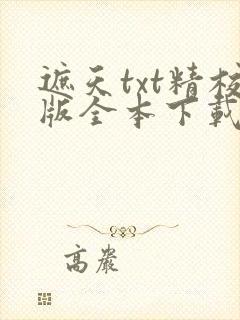 遮天txt精校
版全本下载
高岩